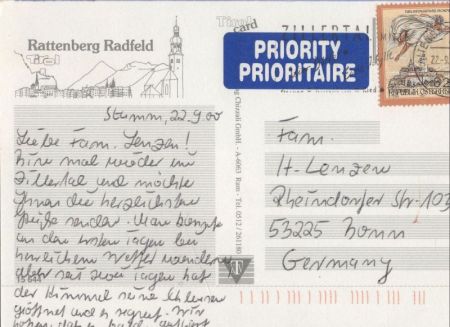 Rattenberg Radfeld
Tirol
Tirol
card
ZILLERTAL
PRIORITY
PRIORITAIRE
Stumm, 22.9.00
Liebe Fam. Lenzen!
Bin mal wieder im
Zillertal und möchte
Ihnen die herzlichsten
Grüße senden. Man konnte
an den ersten Tagen bei
herrlichem Wetter wandern
aber seit zwei Tagen hat
der Himmel seine Schleusen
geöffnet und es regnet. Wir
hoffen, daß es bald aufhört
15 644
Chizzali GmbH. · A-6063 Rum · Tel. 0512 / 261180
Fam.
H. Lenzen
Rheindorfer Str. 103
53225 Bonn
Germany